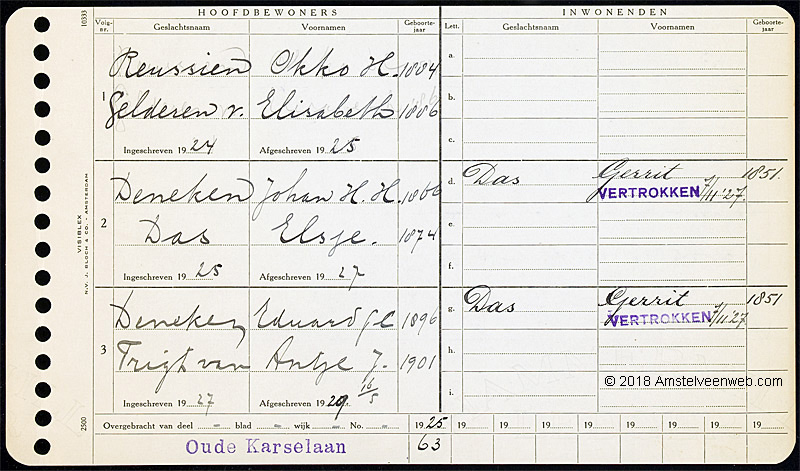 HOOFDBEWONERS INWONENDEN
Volg-nr. Geslachtsnaam Voornamen Geboorte-jaar Lett. Geslachtsnaam Voornamen Geboorte-jaar
10333
1 Reussien Okko H. 1884 a.
Gelderen v. Elisabeth 1886 b.
c.
Ingeschreven 1924 Afgeschreven 1925
2 Deneken Johan H. H. 1866 d. Das Gerrit 1851
VERTROKKEN 7/11'27.
Das Elsje. 1874 e.
f.
Ingeschreven 1925 Afgeschreven 1927
3 Deneken Eduard 1896 g. Das Gerrit 1851
VERTROKKEN 7/11'27
Trigt van Antje J. 1901 h.
i.
Ingeschreven 1927 Afgeschreven 1929 16/5
© 2018 Amstelveenweb.com
Overgebracht van deel – blad – wijk – No. – 1925 19 19 19 19 19 19 19 19
Oude Karselaan 63
VISIBLEX
N.V. J. BLOCH & CO. - AMSTERDAM
2500